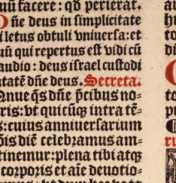 uū facere: qđ perierat.
Dñe deus in simplicitate
i letus obtuli vniuersa: et
uū qui repertus est vidi cū
audio: deus israel custodi
tatē dñe deus. Secreta.
nnue q̄s dñe p̄cibus no-
ris: vt quicūq; intra tē-
s: cuius anniuersarium
ōis diē celebramus am-
tinemur: plena tibi atq;
corporis et aīe deuotio-